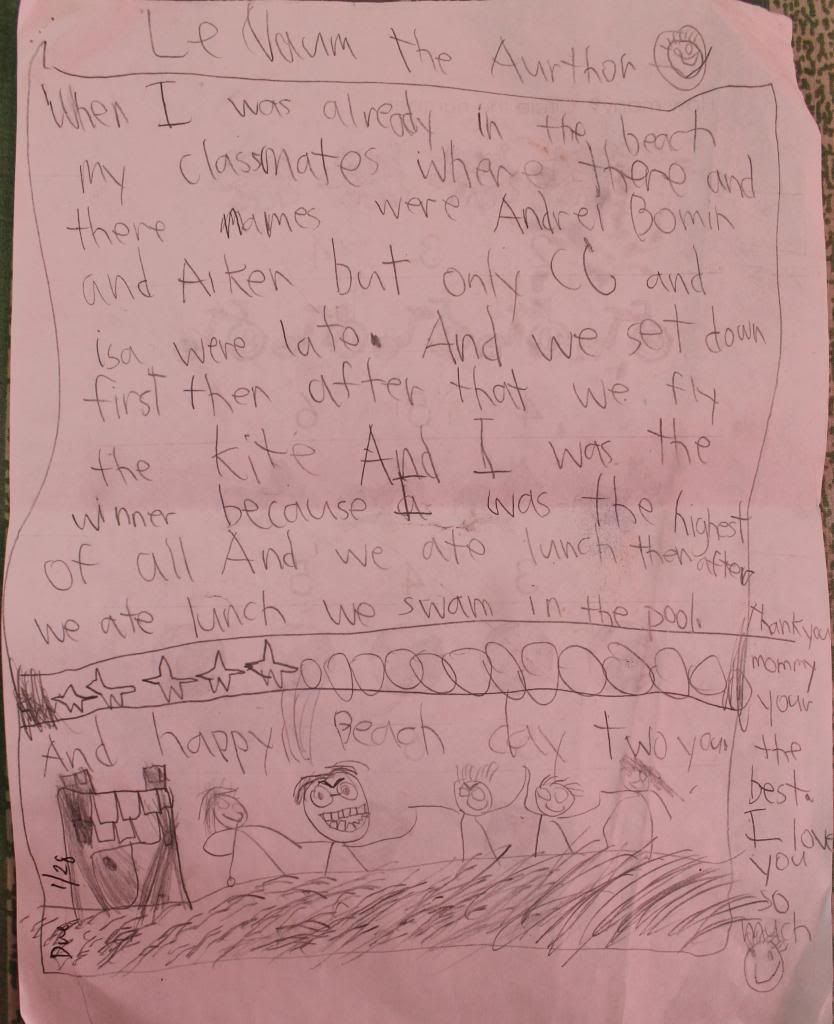 Le Naum the Aurthor
When I was already in the beach
my classmates where there and
there names were Andrei Bomin
and Aiken but only CG and
isa were late. And we set down
first then after that we fly
the kite And I was the
winner because I was the highest
of all And we ate lunch then after
we ate lunch we swam in the pool.
And happy Beach day two you
Thank you
mommy
your
the
best.
I love
you
so
much
Due 1/28